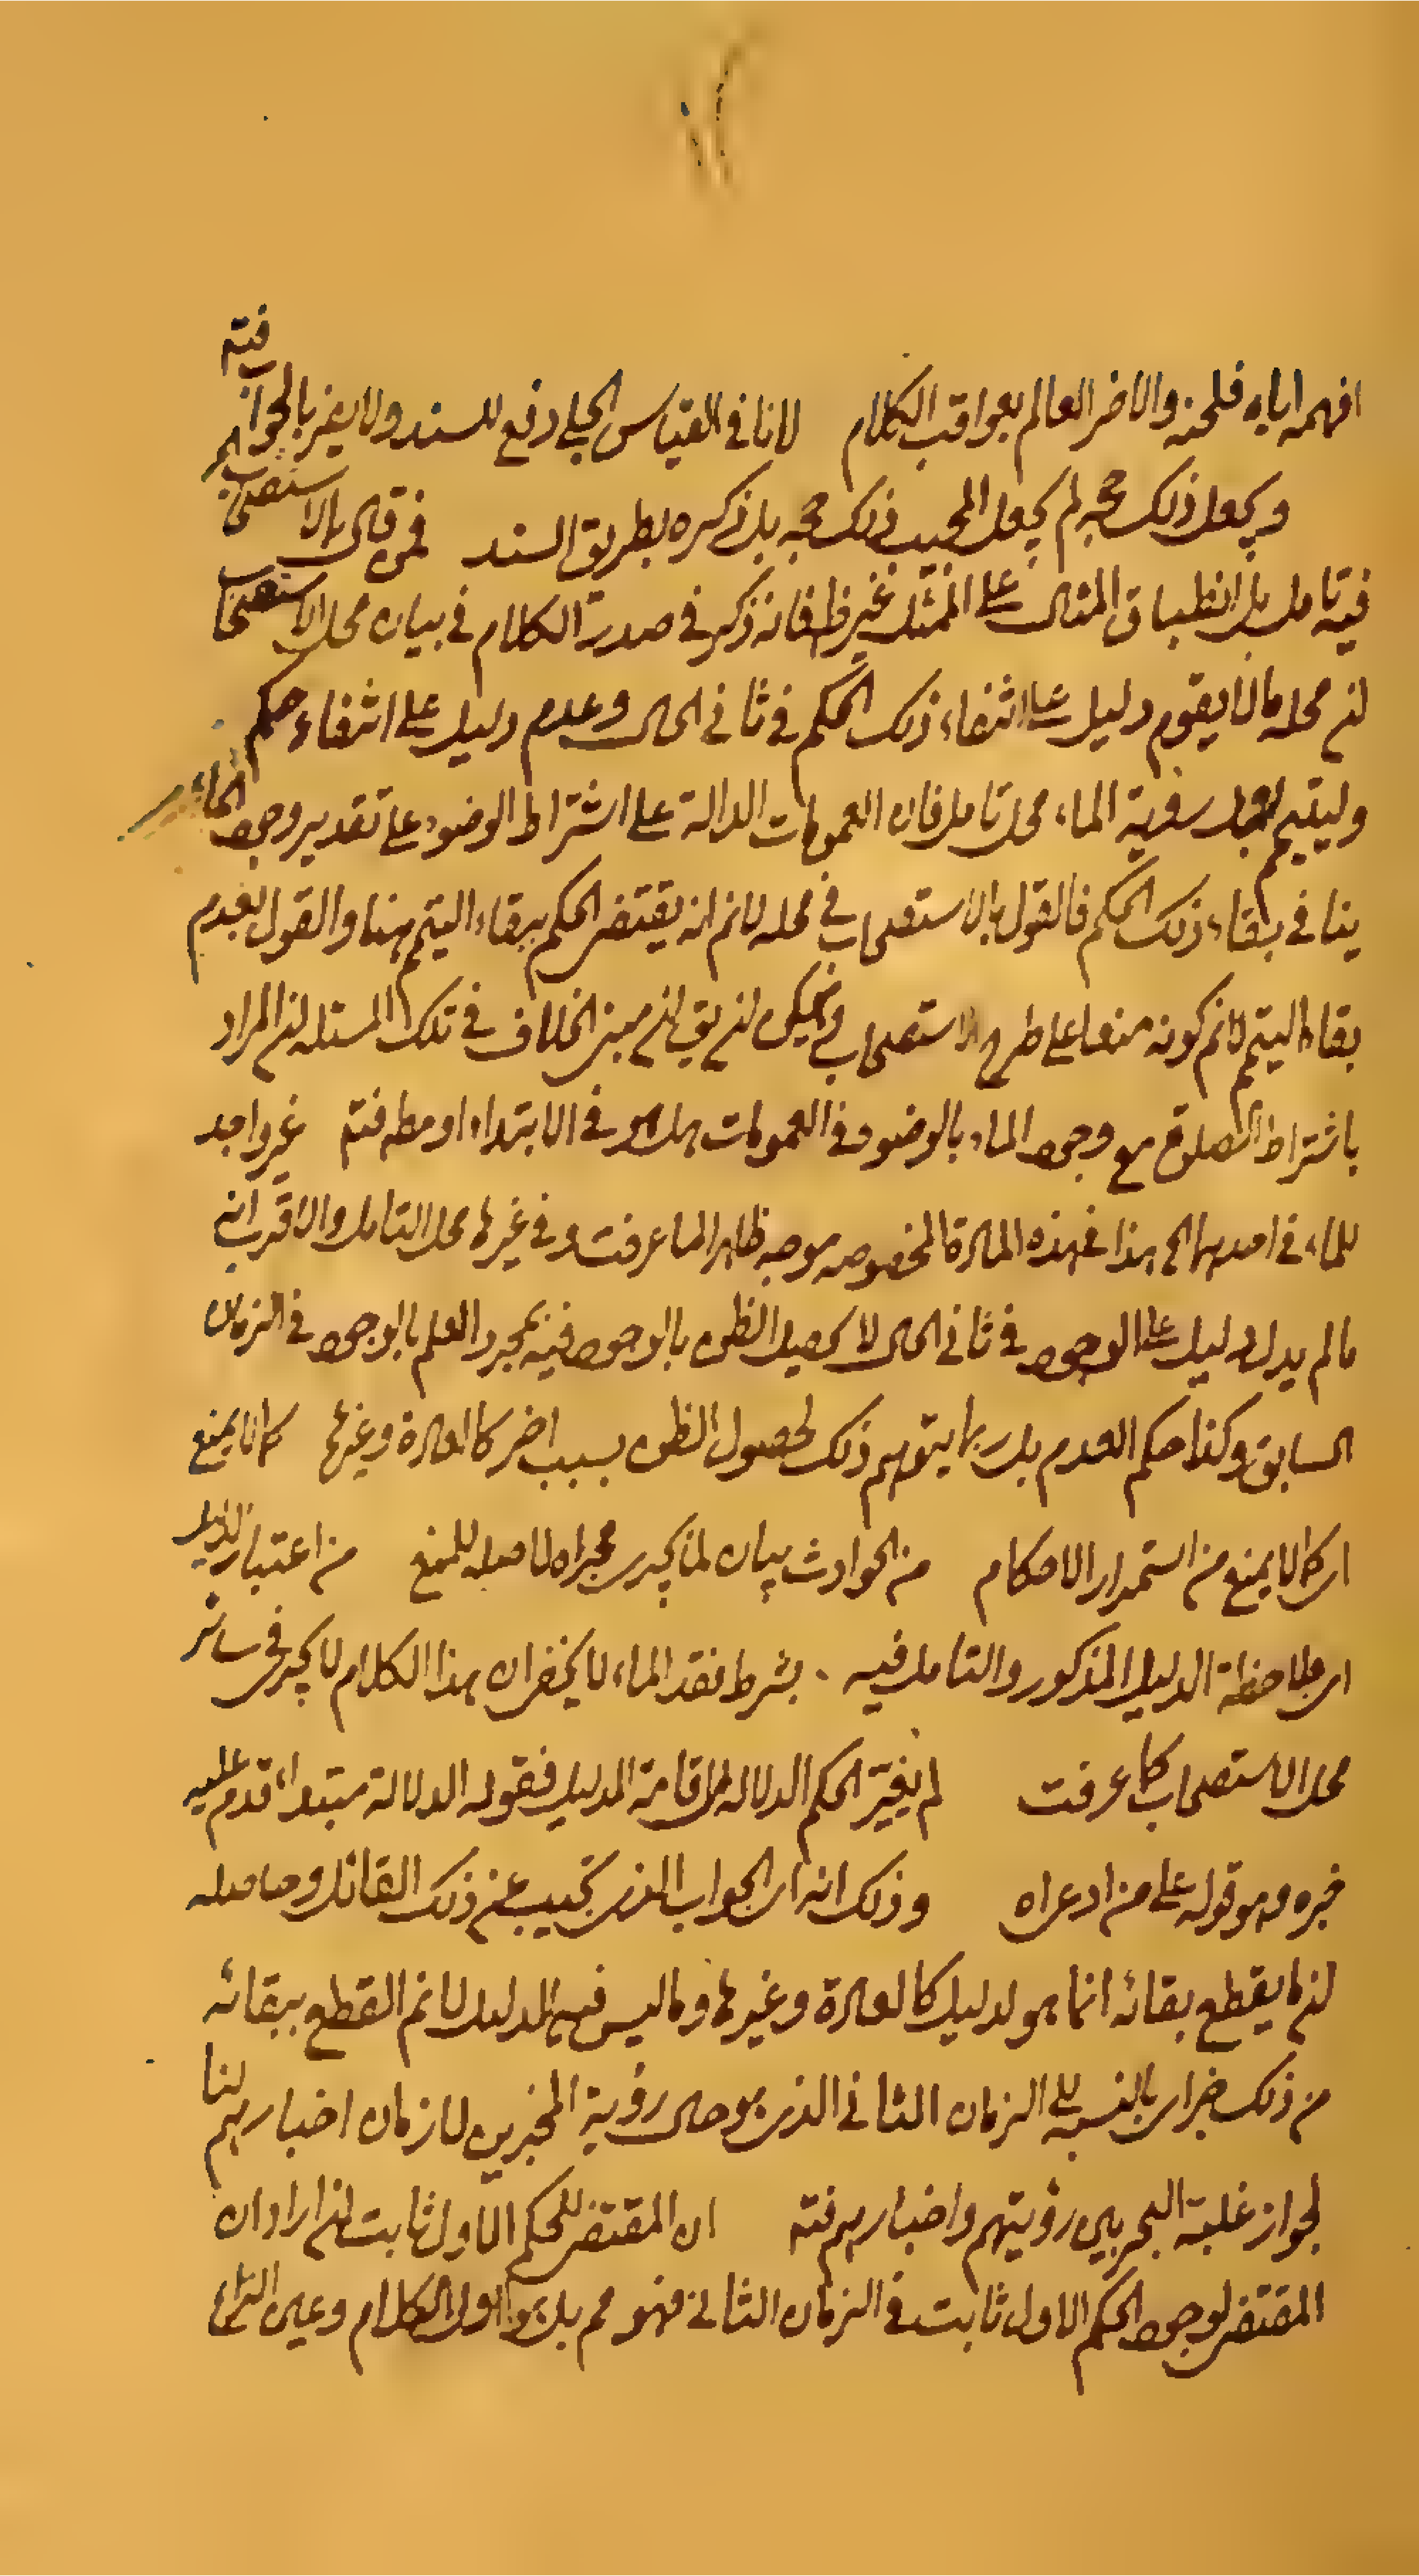 افهمه اياه فلحنه والاخر العالم بعواقب الكلام لانا فى القياس الجلى دفع للسند ولا يضر بالجواب فته
ويجعل ذلك حجة لم يجعل المجيب ذلك حجة بل ذكره بطريق السند فمن قال بالاستصحاب
فيه تامل بل انطباق المثال على الممثل غير ظ فانه ذكر فى صدر الكلام فى بيان محل الاستصحاب
ان محله ما لا يقوم دليل على انتفاء ذلك الحكم فى ثانى الحال وعدم دليل على انتفاء حكم
وليتيم بعد رؤية الماء محل تامل فان العمومات الدالة على اشتراط الوضوء على تقدير وجود الماء
ينافى بقاء ذلك الحكم فالقول بالاستصحاب فى محله لانم انه يقتضى الحكم ببقاء التيمم هنا والقول بعدم
بقاء التيمم لانم كونه منعا على طرح الاستصحاب ويمكن ان يق ان مبنى الخلاف فى تلك المسئلة ان المراد
باشتراط الصلوة مع وجود الماء بالوضوء فى العمومات هل هو فى الابتداء او مط فته غير واجد
للماء فى احديهما الخ هذا فى هذه المادة المخصوصه موجه ظاهرا لما عرفت وفى غيرها محل التامل والاقرب انه
ما لم يدل دليل على الوجود فى ثانى الحال لا يحصل الظن بالوجود فيه بمجرد العلم بالوجود فى الزمان
السابق وكذا حكم العدم بل ربما يتوهم ذلك لحصول الظن بسبب اخر كالعادة وغيرها كما لا يمنع
اى كما لا يمنع من استمرار الاحكام من الحوادث بيان لما يجرى مجراه لا صلة للمنع من اعتبار الدليل
اى ملاحظة الدليل المذكور والتامل فيه بشرط فقد الماء لا يخفى ان هذا الكلام لا يجرى فى سائر
محل الاستصحاب كما عرفت لم يغير الحكم الدلالة اى اقامة الدليل فقوله الدلالة مبتداء قدم عليه
خبره وهو قوله على من ادعاه وذلك انه اى الجواب الذى يجيب عن ذلك القائل وحاصله
ان ما يقطع ببقائه انما هو لدليل كالعادة وغيرها وما ليس فيه الدليل لانم القطع ببقائه
من ذلك ضرار بالنسبة الى الزمان الثانى الذى هو حال رؤية المخبرين لا زمان اخبارهم لنا
لجواز غلبة البحر بين رؤيتهم واخبارهم فته ان المقتضى للحكم الاول ثابت ان اراد ان
المقتضى لوجود الحكم الاول ثابت فى الزمان الثانى فهو مم بل هو اول الكلام وعين النزاع